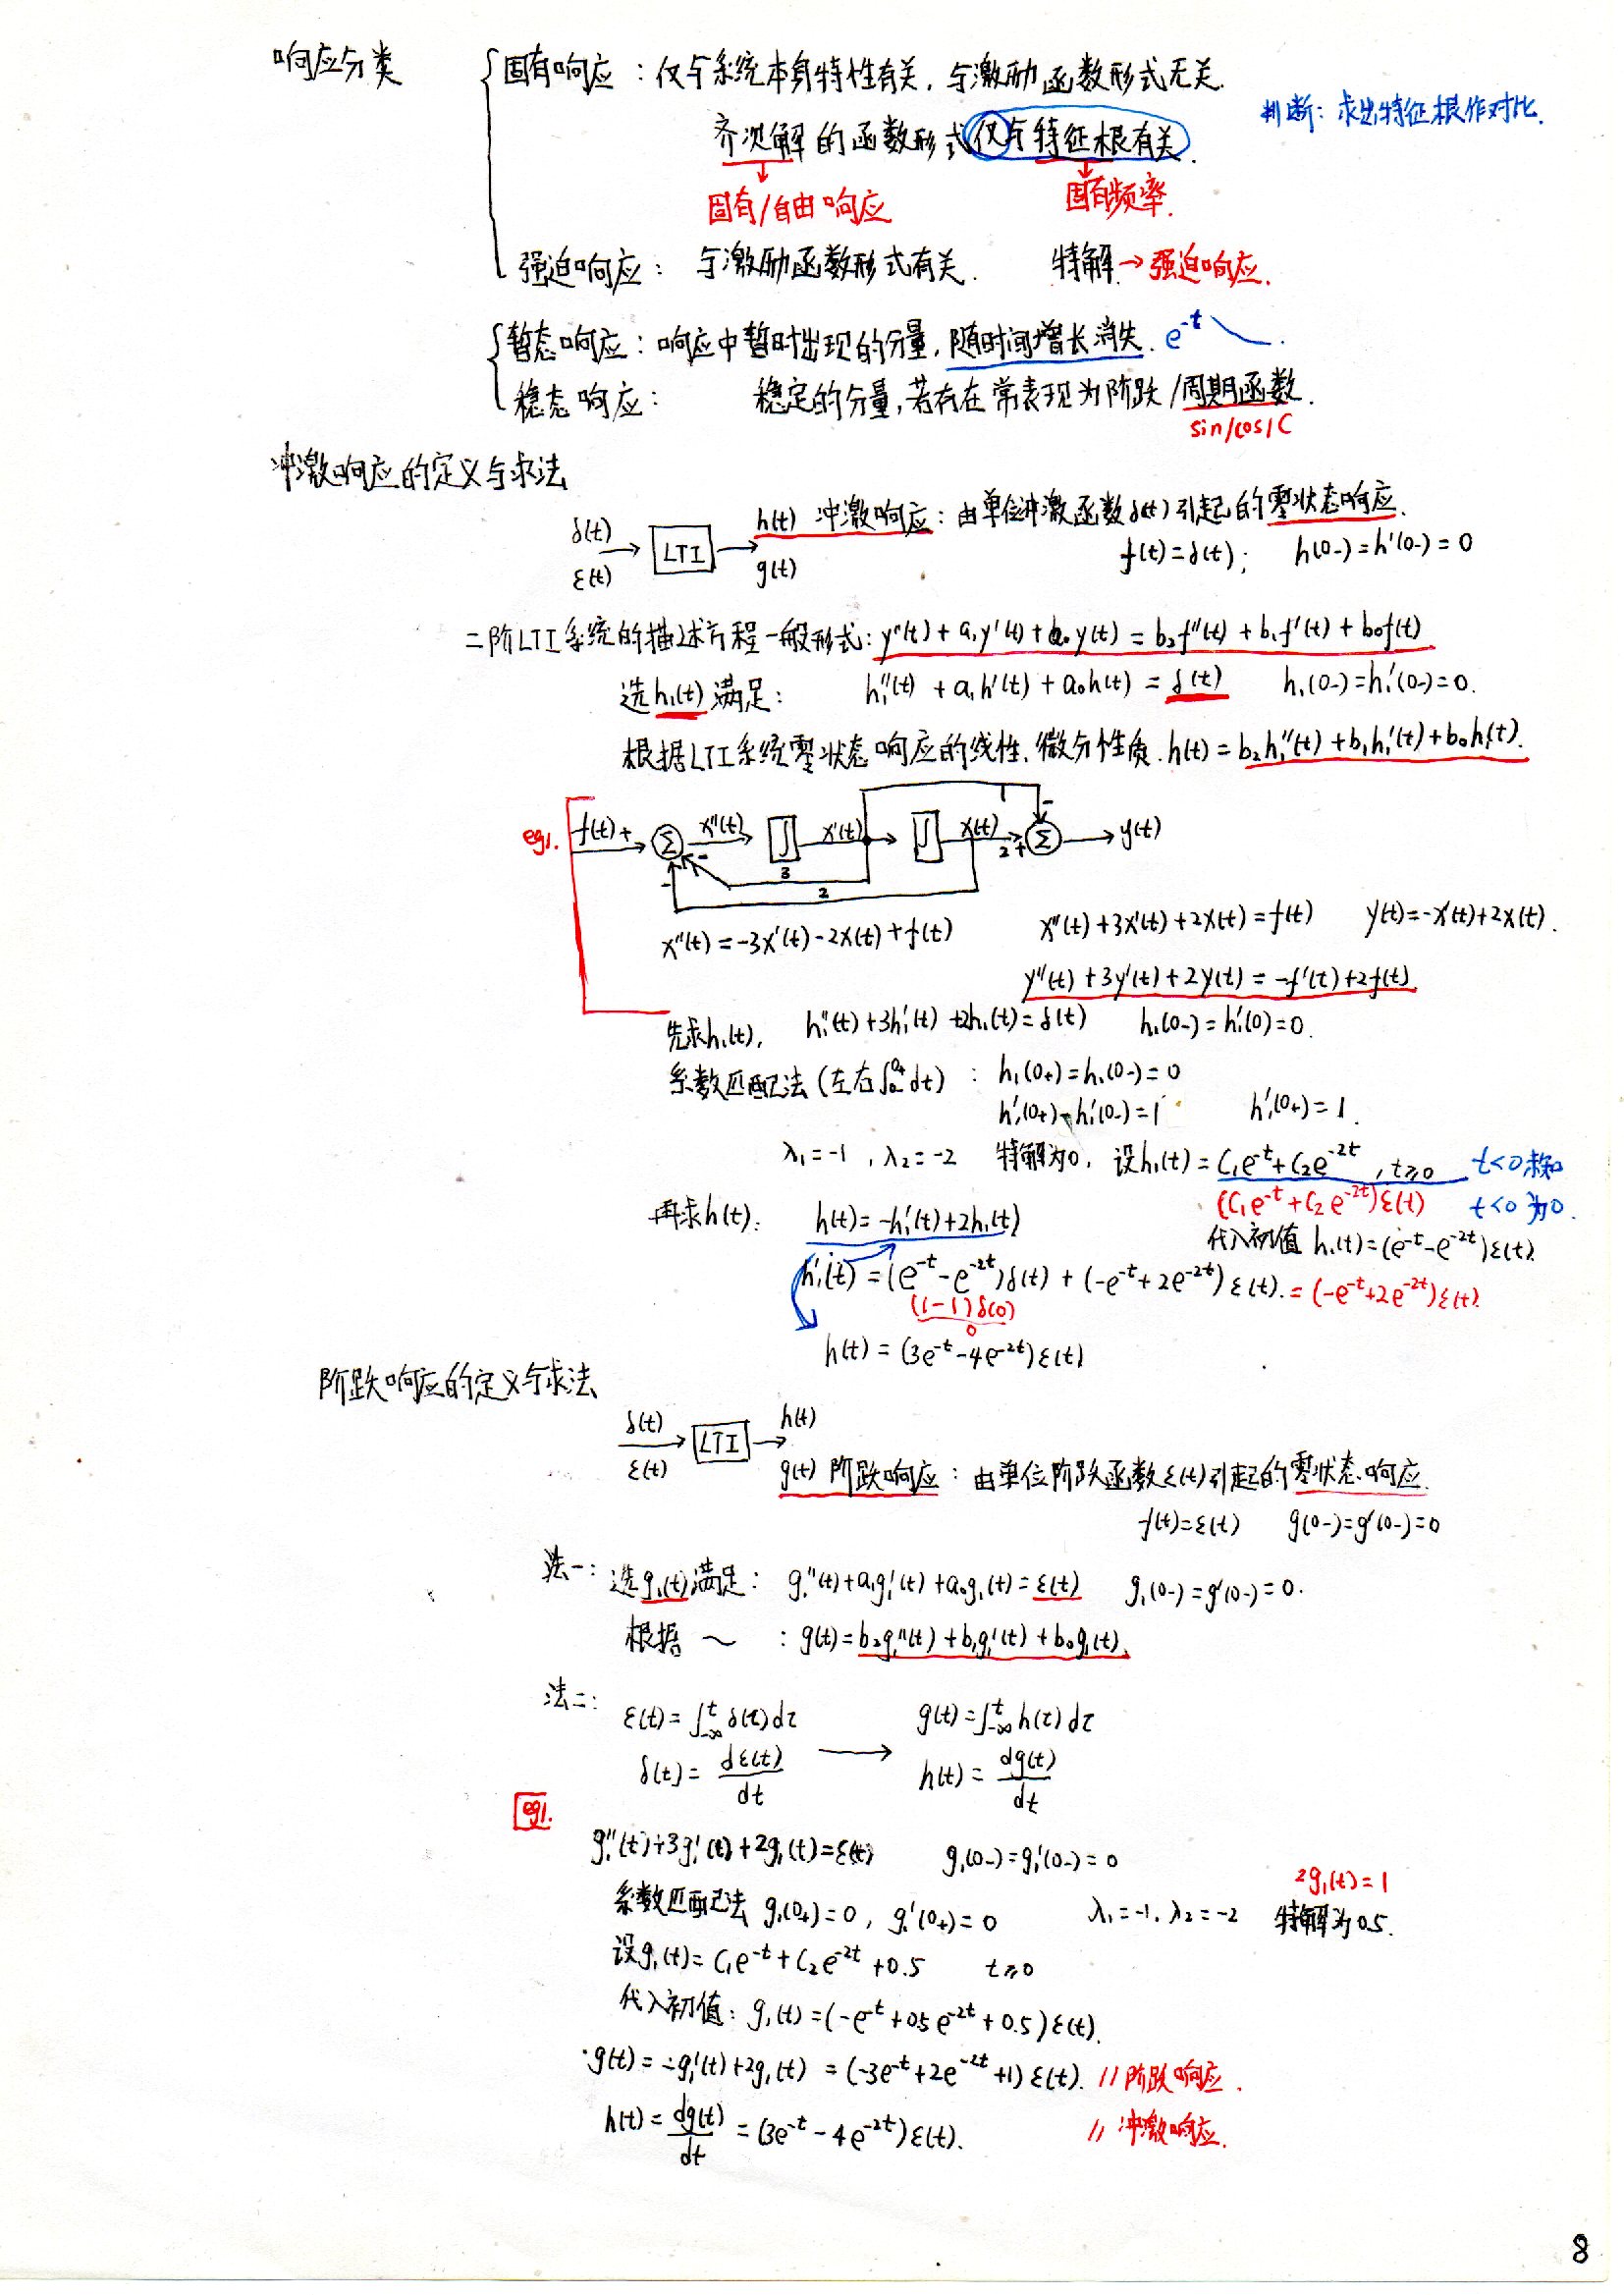 响应分类
固有响应：仅与系统本身特性有关，与激励函数形式无关.
判断：求出特征根作对比.
齐次解的函数形式仅与特征根有关.
固有/自由响应 固有频率.
强迫响应： 与激励函数形式有关. 特解→强迫响应.
暂态响应：响应中暂时出现的分量，随时间增长消失. e^{-t}
稳态响应： 稳定的分量，若存在常表现为阶跃/周期函数.
sin/cos/C
冲激响应的定义与求法
δ(t) → LTI → h(t) 冲激响应：由单位冲激函数δ(t)引起的零状态响应.
ε(t) g(t) f(t)=δ(t); h(0-)=h'(0-)=0
二阶LTI系统的描述方程一般形式: y''(t)+a₁y'(t)+a₀y(t)=b₂f''(t)+b₁f'(t)+b₀f(t)
选h₁(t)满足: h₁''(t)+a₁h'(t)+a₀h(t)=δ(t) h₁(0-)=h₁'(0-)=0.
根据LTI系统零状态响应的线性.微分性质.h(t)=b₂h₁''(t)+b₁h₁'(t)+b₀h₁(t).
eg1. f(t) + Σ x''(t) ∫ x'(t) ∫ x(t) 2 + Σ y(t)
- - - 3
2
x''(t)=-3x'(t)-2x(t)+f(t) x''(t)+3x'(t)+2x(t)=f(t) y(t)=-x'(t)+2x(t).
y''(t)+3y'(t)+2y(t)=-f'(t)+2f(t)
先求h₁(t), h₁''(t)+3h₁'(t)+2h₁(t)=δ(t) h₁(0-)=h₁'(0)=0.
系数匹配法(左右∫_{0-}^{0+}dt): h₁(0+)=h₁(0-)=0
h₁'(0+)-h₁'(0-)=1 h₁'(0+)=1.
λ₁=-1, λ₂=-2 特解为0, 设h₁(t)=C₁e^{-t}+C₂e^{-2t}, t≥0 t<0未知
(C₁e^{-t}+C₂e^{-2t})ε(t) t<0为0.
再求h(t): h(t)=-h₁'(t)+2h₁(t) 代入初值 h₁(t)=(e^{-t}-e^{-2t})ε(t)
h₁'(t)=(e^{-t}-e^{-2t})δ(t)+(-e^{-t}+2e^{-2t})ε(t).=(-e^{-t}+2e^{-2t})ε(t)
(1-1)δ(0)
0
h(t)=(3e^{-t}-4e^{-2t})ε(t)
阶跃响应的定义与求法
δ(t) → LTI → h(t)
ε(t) g(t) 阶跃响应：由单位阶跃函数ε(t)引起的零状态响应.
f(t)=ε(t) g(0-)=g'(0-)=0
法一: 选g₁(t)满足: g₁''(t)+a₁g₁'(t)+a₀g₁(t)=ε(t) g₁(0-)=g'(0-)=0.
根据 ~ : g(t)=b₂g₁''(t)+b₁g₁'(t)+b₀g₁(t).
法二: ε(t)=∫_{-∞}^{t}δ(τ)dτ g(t)=∫_{-∞}^{t}h(τ)dτ
δ(t)=dε(t)/dt → h(t)=dg(t)/dt
eg1.
g₁''(t)+3g₁'(t)+2g₁(t)=ε(t) g₁(0-)=g₁'(0-)=0
2g₁(t)=1
系数匹配法 g₁(0+)=0, g₁'(0+)=0 λ₁=-1, λ₂=-2 特解为0.5.
设g₁(t)=C₁e^{-t}+C₂e^{-2t}+0.5 t≥0
代入初值: g₁(t)=(-e^{-t}+0.5e^{-2t}+0.5)ε(t).
g(t)=-g₁'(t)+2g₁(t)=(-3e^{-t}+2e^{-2t}+1)ε(t). //阶跃响应.
h(t)=dg(t)/dt=(3e^{-t}-4e^{-2t})ε(t). //冲激响应.
8